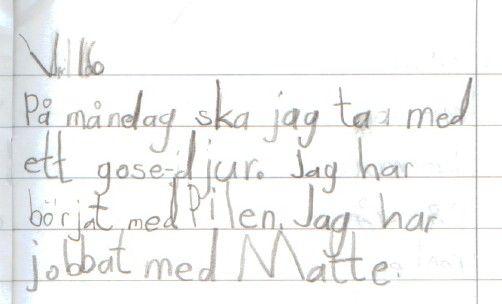 På måndag ska jag ta med
ett gose-djur. Jag har
börjat med Pilen. Jag har
jobbat med Matte.